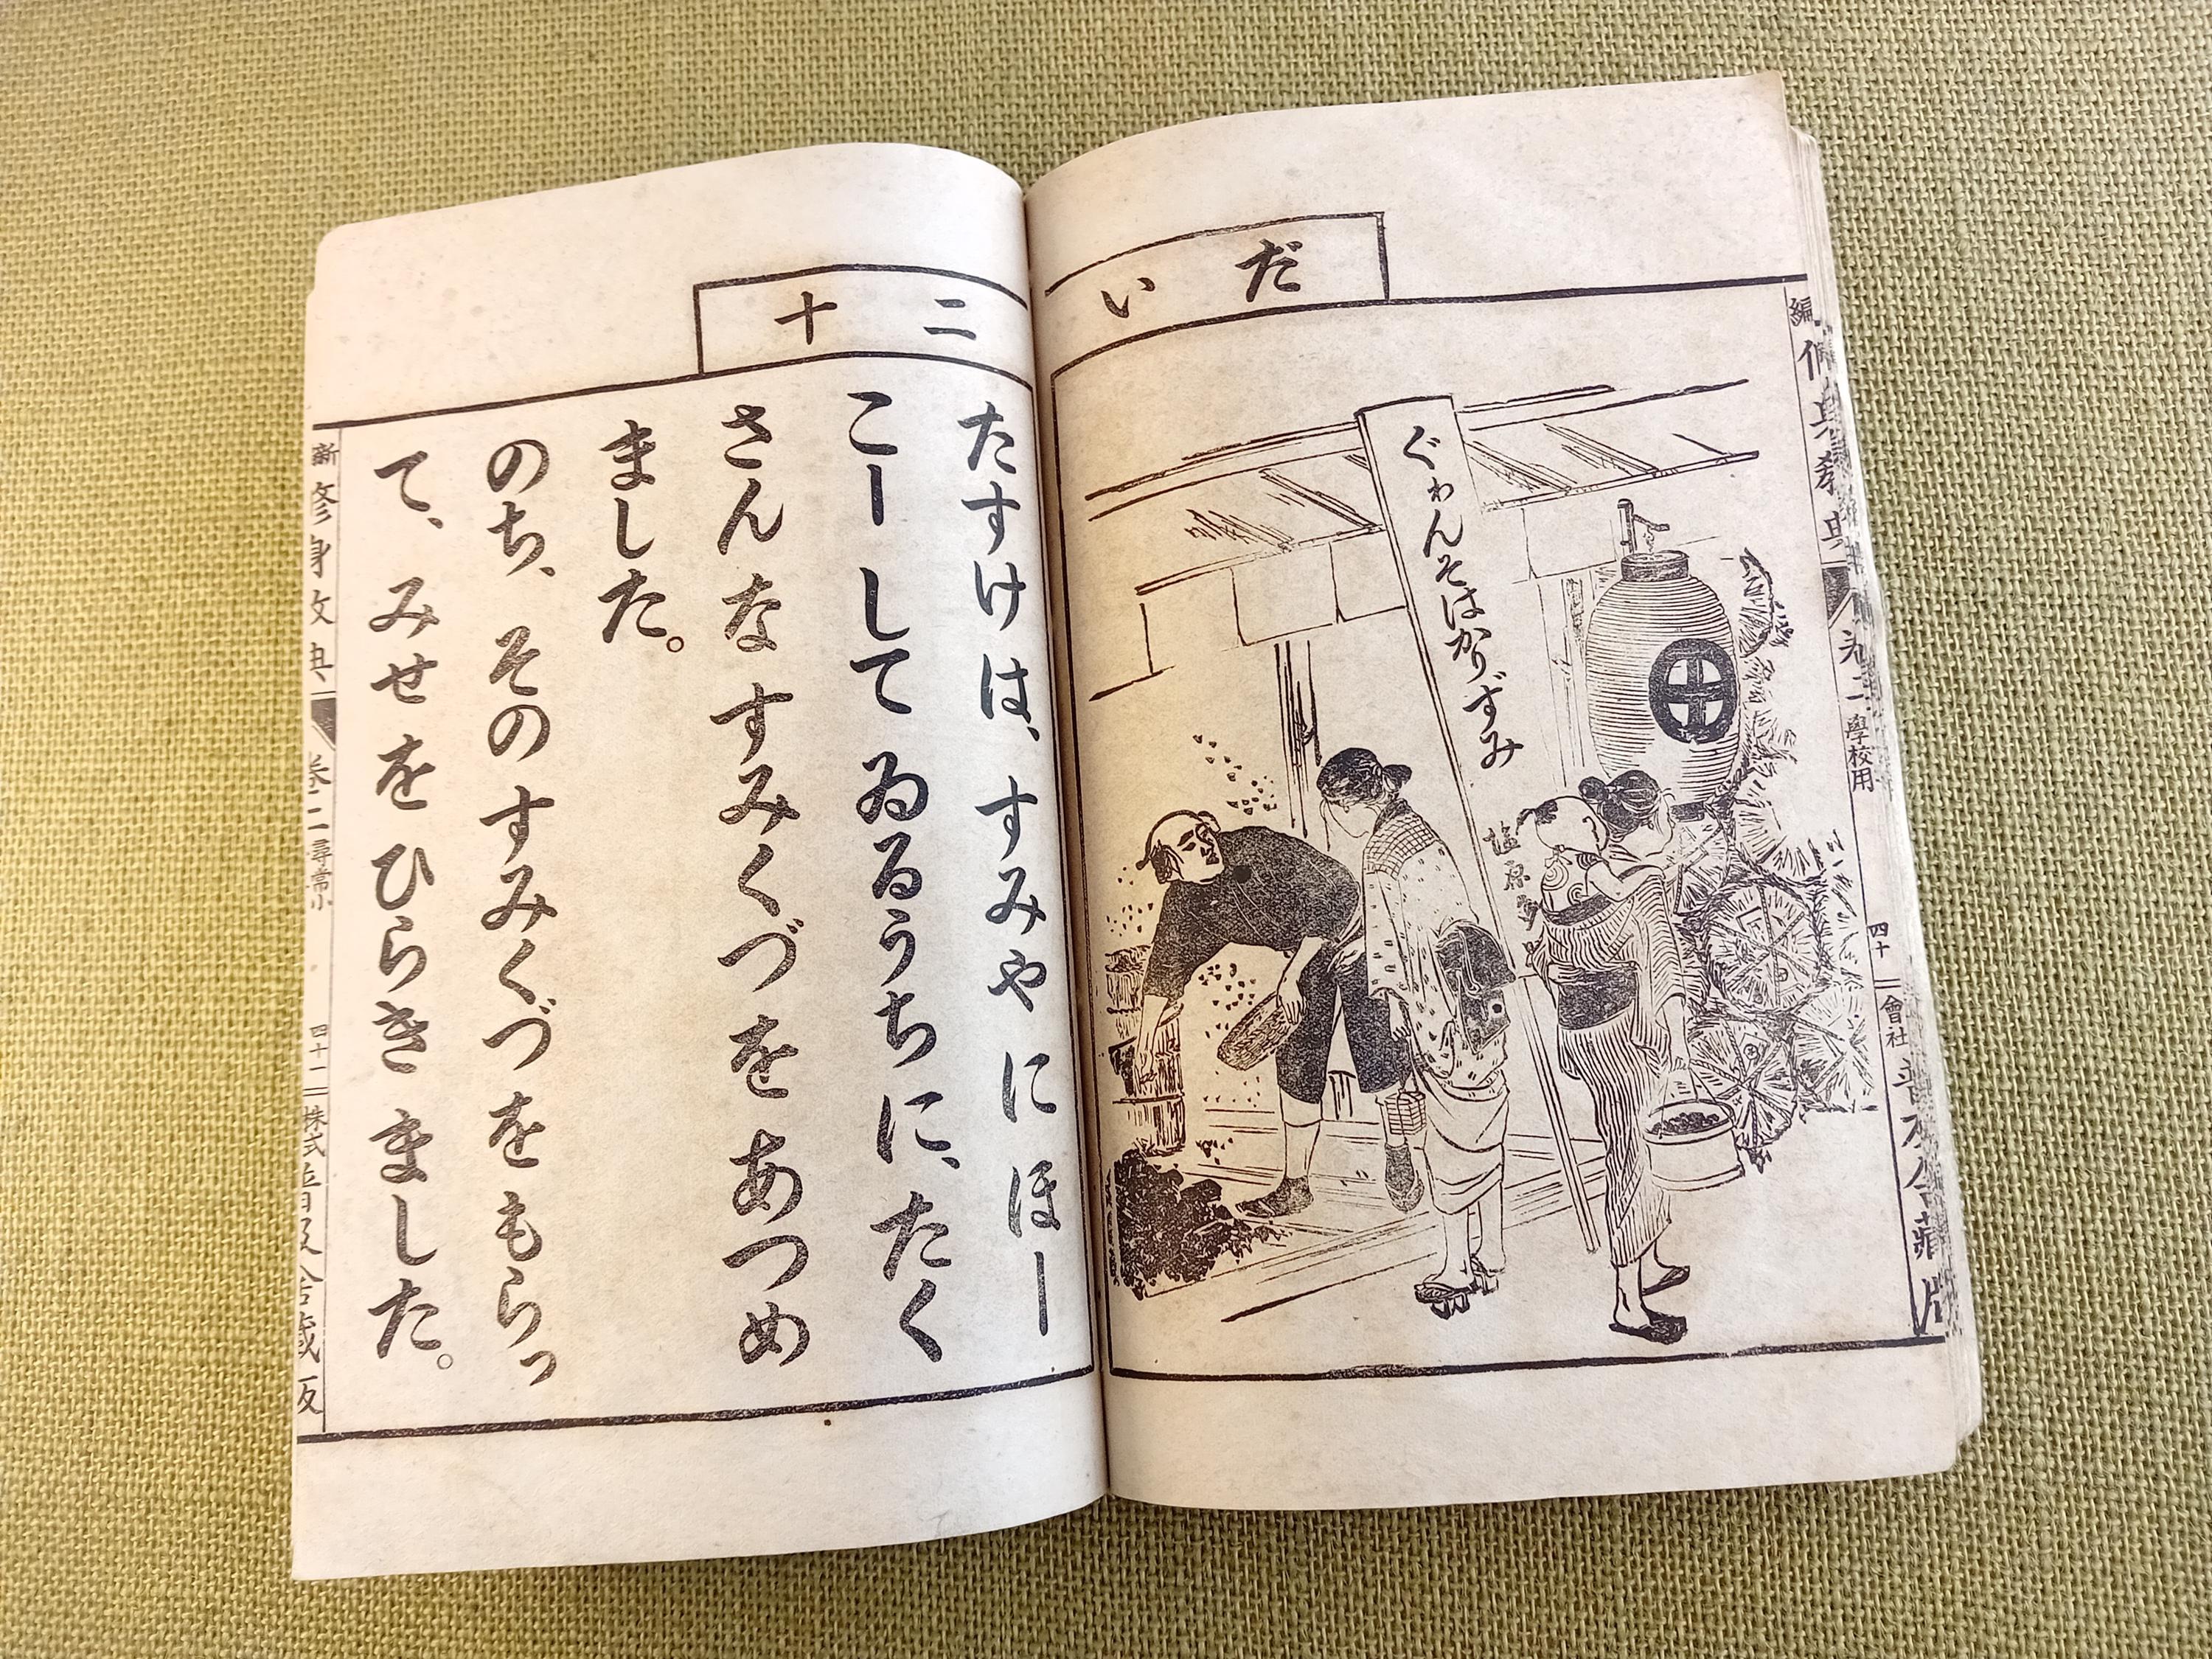 學校用
四十
會社
だい
ぐわんそはかりずみ
原
二十
たすけは、すみや に ほー
こーして ゐるうちに、たく
さんな すみくづを あつめ
ました。
のち、その すみくづを もらっ
て、みせを ひらき ました。
新
修身
卷二
尋常小
四十一
株式